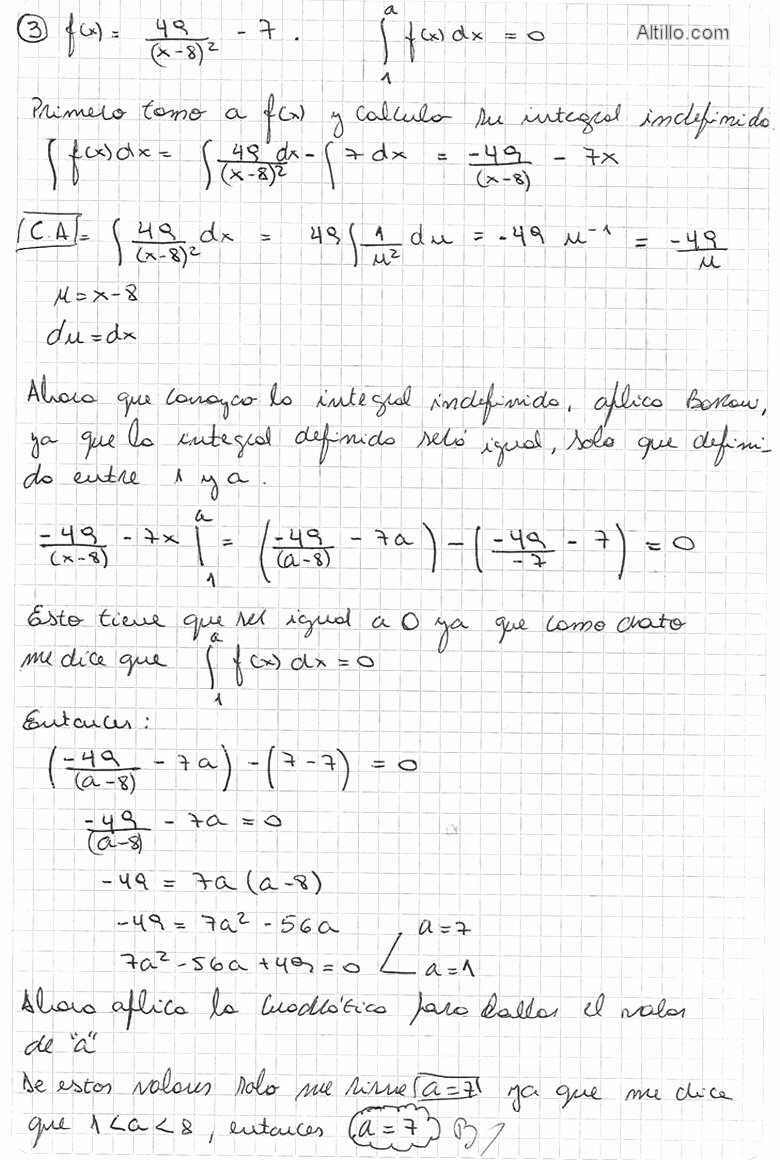 ③ f(x) = 49/(x-8)² - 7 . ∫₁ᵃ f(x) dx = 0 Altillo.com
Primero tomo a f(x) y calculo su integral indefinida.
∫ f(x) dx = ∫ 49/(x-8)² dx - ∫ 7 dx = -49/(x-8) - 7x
C.A = ∫ 49/(x-8)² dx = 49 ∫ 1/u² du = -49 u⁻¹ = -49/u
u = x-8
du = dx
Ahora que conozco la integral indefinida, aplico Barrow,
ya que la integral definida será igual, solo que defini-
da entre 1 y a.
-49/(x-8) - 7x |₁ᵃ = (-49/(a-8) - 7a) - (-49/-7 - 7) = 0
Esto tiene que ser igual a 0 ya que como dato
me dice que ∫₁ᵃ f(x) dx = 0
Entonces:
(-49/(a-8) - 7a) - (7-7) = 0
-49/(a-8) - 7a = 0
-49 = 7a (a-8)
-49 = 7a² - 56a a=7
7a² - 56a + 49 = 0 a=1
Ahora aplico la cuadrática para hallar el valor
de "a"
De estos valores solo me sirve a=7 ya que me dice
que 1<a<8, entonces a=7 B